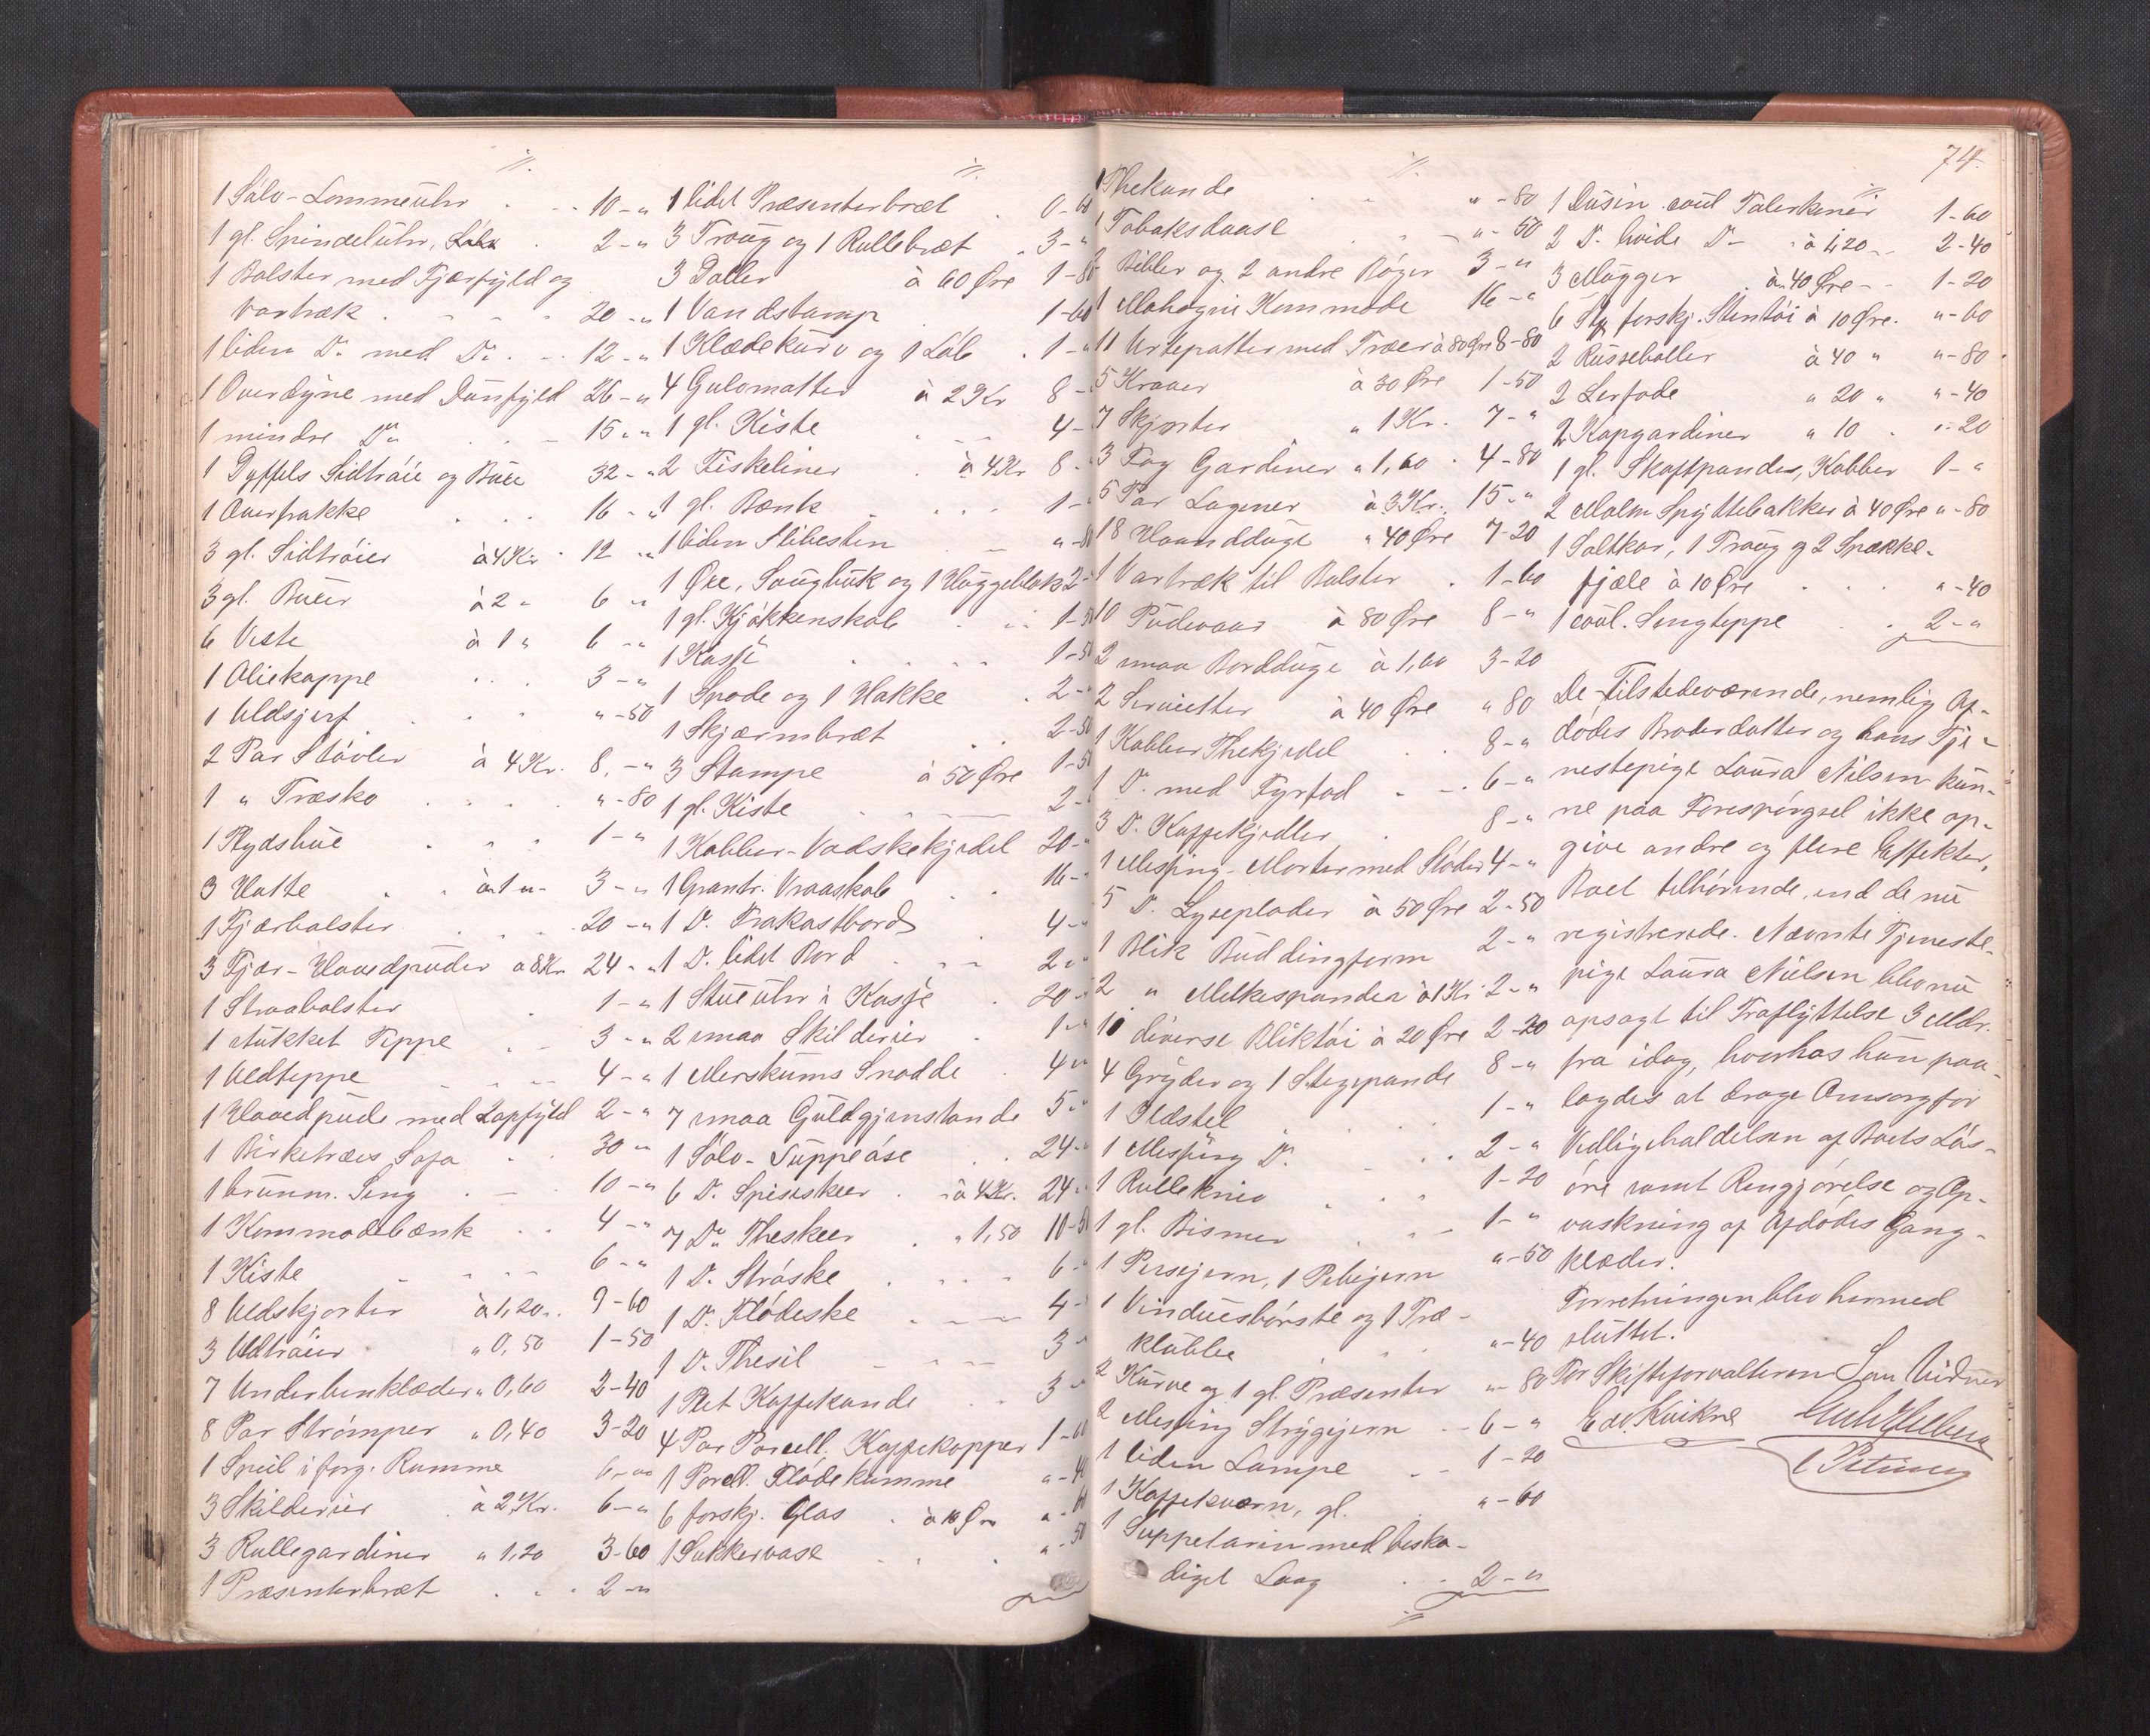 ·//.
1 Sølv-Lommeuhr . . . 10-"
1 gl. Spindeluhr, Sølv . 2-"
1 Bolster med Fjærfyld og
Vartræk . . . . 20-"
1 liden Do. med Do. . . 12-"
1 Overdyne med Dunfyld 26-"
1 mindre Do. . . . 15-"
1 Dyffels Sidtrøie og Buxe 32-"
1 Overfrakke . . . 16-"
3 gl. Sidtrøier à 4 Kr. 12-"
3 gl. Buxer à 2 " 6-"
6 Veste à 1 " 6-"
1 Oliekappe . . . 3-"
1 Uldsjerf . . . "-50
2 Par Støvler à 4 Kr. 8,-"
1 " Træsko . . . "-80
1 Plydshue . . . 1-"
3 Hatte . . à 1 "- 3-"
1 Fjærbolster . . . 20-"
3 Fjær-Hovedpuder à 8 Kr. 24-"
1 Straabolster . 1-"
1 stukket Teppe . . 3-"
1 Uldteppe . . . 4-"
1 Hovedpude med Lopfyld 2-"
1 Birketræes Sofa . . 30-"
1 brunm. Seng . . 10-"
1 Kommodebænk . . 4-"
1 Kiste . . . 6-"
8 Uldskjorter à 1,20 .. 9-60
3 Uldtrøier " 0,50 1-50
7 Underbenklæder " 0,60 2-40
8 Par Strømper " 0,40 3-20
1 Speil i forg. Ramme 6-"
3 Skilderier à 2 Kr. 6-"
3 Rullegardiner " 1,20 3-60
1 Præsenterbræt . . . 2-"
·//.
1 lidet Præsenterbræt . 0-60
3 Traug og 1 Rullebræt . 3-"
3 Baller à 60 Øre 1-80
1 Vandstamp . 1-60
1 Klædekurv og 1 Løb . 1-"
4 Gulvmatter à 2 Kr 8-
1 gl. Kiste . . . 4-
2 Fiskeliner . à 4 Kr 8-
1 gl. Bænk . . . . 1-
1 liden Slibesten . . "-80
1 Øxe, Saugbuk og 1 Huggeblok 2-
1 gl. Kjøkkenskab . . . 1-50
1 Kasse . . . . 1-50
1 Spade og 1 Hakke . 2-"
1 Skjærmbræt . . 2-50
3 Stampe à 50 Øre 1-50
1 gl. Kiste . . . 2-
1 Kobber-Vadskekjedel 20-"
1 Grantr. Vraaskab . 16-"
1 Do. Frakostbord . 4-"
1 Do. lidet Bord . . . 2-"
1 Stueuhr i Kasse . 20-"
2 smaa Skilderier . 1-"
1 Merskums Snadde . 4-"
7 smaa Guldgjenstande 5-"
1 Sølv-Suppeøse . . 24-"
6 Do. Spiseskeer . à 4 Kr. 24-
7 Do. Theskeer . " 1,50 10-50
1 Do. Strøske . . . . 6-"
1 Do. Flødeske . . . 4-
1 Do. Thesil . . . 3-"
1 Plet Kaffekande . . 3-"
4 Par Porcell. Kaffekopper 1-60
1 Porcell. Flødekumme "-40
6 forskj. Glas . à 10 Øre "-60
1 Sukkervase . . . "-50
·//.
1 Thekande . . "-80
1 Tobaksdaase . . "-50
2 Bibler og 2 andre Bøger 3-"
1 Mahogni Kommode 16-"
11 Urtepotter med Træer à 80 Øre 8-80
5 Kraver à 30 Øre 1-50
7 Skjorter " 1 Kr. 7-"
3 Fag Gardiner " 1,60 . 4-80
5 Par Lagener à 3 Kr. 15-"
18 Haandduge " 40 Øre 7-20
1 Vartræk til Bolster . 1-60
10 Pudevaar à 80 Øre 8-"
2 smaa Bordduge à 1,60 3-20
2 Servietter à 40 Øre "80
1 Kobber Thekjedel . . 8-"
1 Do. med Fyrfad . . 6-"
3 Do. Kaffekjedler . 8-"
1 Messing-Morter med Støder 4-"
5 Do. Lyseplader à 50 Øre 2-50
1 Blik Buddingform 2-"
2 " Melkespander à 1 Kr. 2-"
11 diverse Bliktøi à 20 Øre 2-20
4 Gryder og 1 Stegepande 8-"
1 Fløstel . . . . 1-"
1 Messing Do. . . . 2-"
1 Rullekniv . . . 1-20
1 gl. Bismer . . . 1-"
1 Persejern, 1 Pibejern "-50
1 Vinduesbørste og 1 Træ-
klubbe . . . "-40
2 Kurve og 1 gl. Præsenter "-80
2 Messing Strygejern .. 6-"
1 liden Lampe . . 1-20
1 Kaffekværn, gl. . "-60
1 Suppeterrin med beska-
diget Laag . . . 2-"
//
74.
·//.
1 Dusin coul Talerkener 1-60
2 Do. hvide Do- . à 1,20 -. 2-40
3 Mugger . à 40 Øre - . 1-20
6 Stkr forskj. Stentøi à 10 Øre. "-60
2 Russeboller à 40 " "-80.
2 Lerfade " 20 " "-40
2 Kapgardiner " 10 . "-20
1 gl. Skaftpande, Kobber 1-"
2 Malm Spyttebakker à 40 Øre "-80
1 Saltkar, 1 Traug og 2 Spække-
fjæle à 10 Øre . . . "-40
1 coul. Sengteppe . . 2-"
De Tilstedeværende, nemlig Af-
dødes Broderdatter og hans Tje-
nestepige Laura Nilsen kun-
ne paa Forespørgsel ikke op-
give andre og flere Effekter,
Boet tilhørende, end de nu
registrerede. Nævnte Tjeneste-
pige Laura Nielsen blev nu
opsagt til Fraflyttelse 3 Mdr.
fra idag, hvorhos hun paa-
lagdes at drage Omsorg for
Vedligeholdelsen af Boets Løs-
øre samt Rengjørelse og Op-
vaskning af Afdødes Gang-
klæder.
Forretningen blev hermed
sluttet.
For Skifteforvalteren
Edv. Kvikne